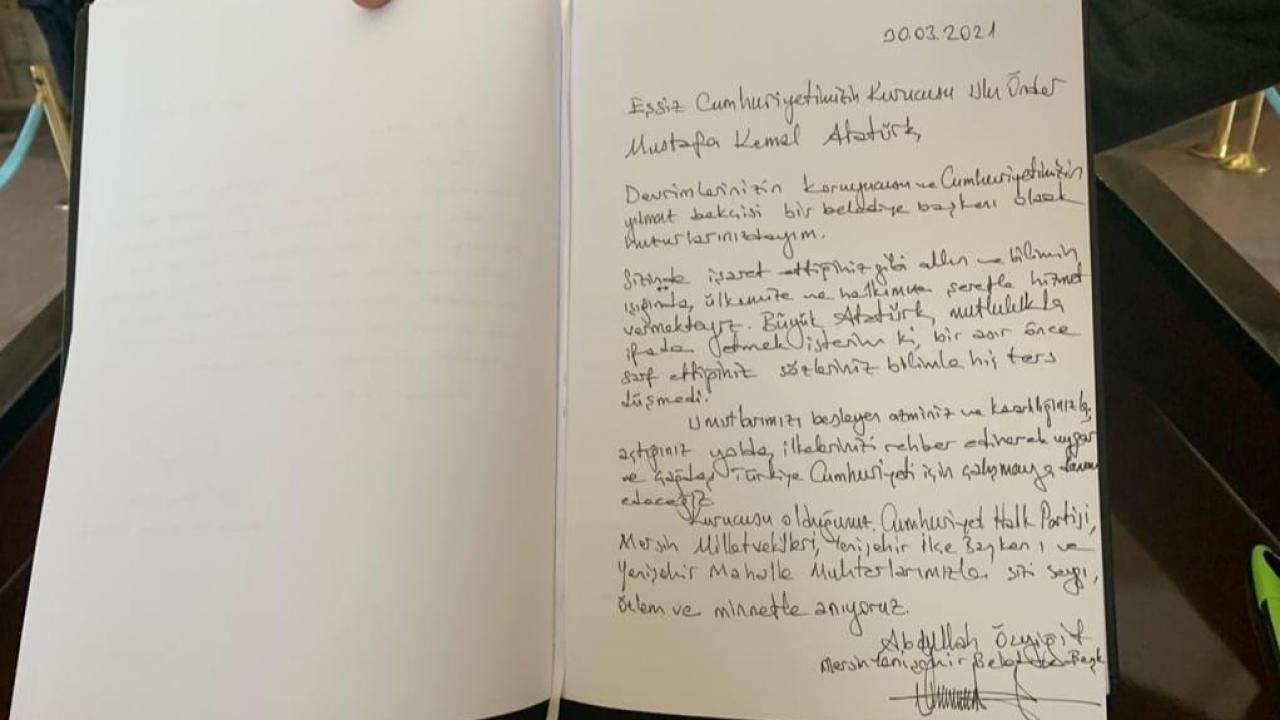 30.03.2021
Eşsiz Cumhuriyetimizin Kurucusu Ulu Önder
Mustafa Kemal Atatürk,
Devrimlerinizin koruyucusu ve Cumhuriyetimizin
yılmaz bekçisi bir belediye başkanı olarak
huzurlarınızdayım.
Sizin de işaret ettiğiniz gibi aklın ve bilimin
ışığında, ülkemize ve halkımıza şerefle hizmet
vermekteyiz. Büyük Atatürk, mutlulukla
ifade etmek isterim ki, bir asır önce
sarf ettiğiniz sözleriniz bilimle hiç ters
düşmedi.
Umutlarımızı besleyen azminiz ve kararlılığınızla,
açtığınız yolda, ilkelerinizi rehber edinerek uygar
ve çağdaş Türkiye Cumhuriyeti için çalışmaya devam
edeceğiz.
Kurucusu olduğunuz Cumhuriyet Halk Partisi,
Mersin Milletvekilleri, Yenişehir İlçe Başkanı ve
Yenişehir Mahalle Muhtarlarımızla sizi saygı,
özlem ve minnetle anıyoruz.
Abdullah Özyiğit
Mersin Yenişehir Belediye Başk